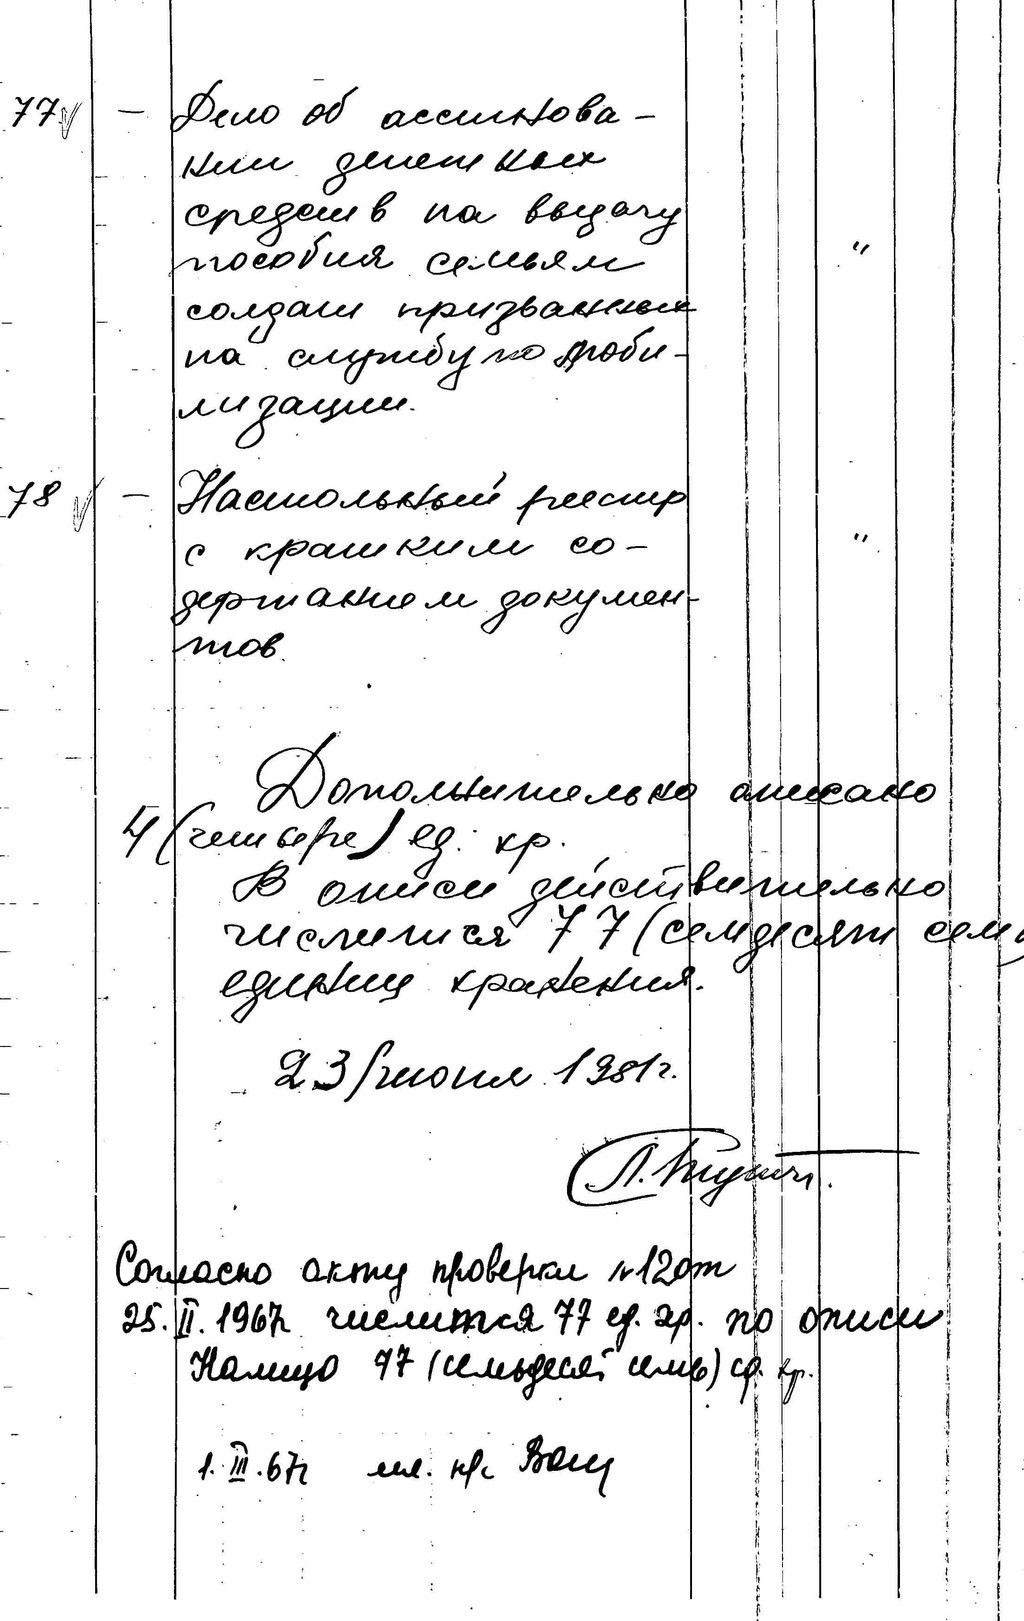 77 — Дело об ассигнова-
нии денежных
средств на выдачу
пособия семьям "
солдат призванных
на службу по моби-
лизации.
78 — Настольный реестр
с кратким со- "
держанием документ-
тов.
Дополнительно описано
4 (четыре) ед. хр.
В описи действительно
числится 77 (семдесят семь
единиц хранения.
23 июня 1981г.
Согласно акту проверки №12 от
25.II.1967г. числится 77 ед. хр. по описи
Налицо 77 (семьдесят семь) ед. хр.
1.III.67г мл. н/с